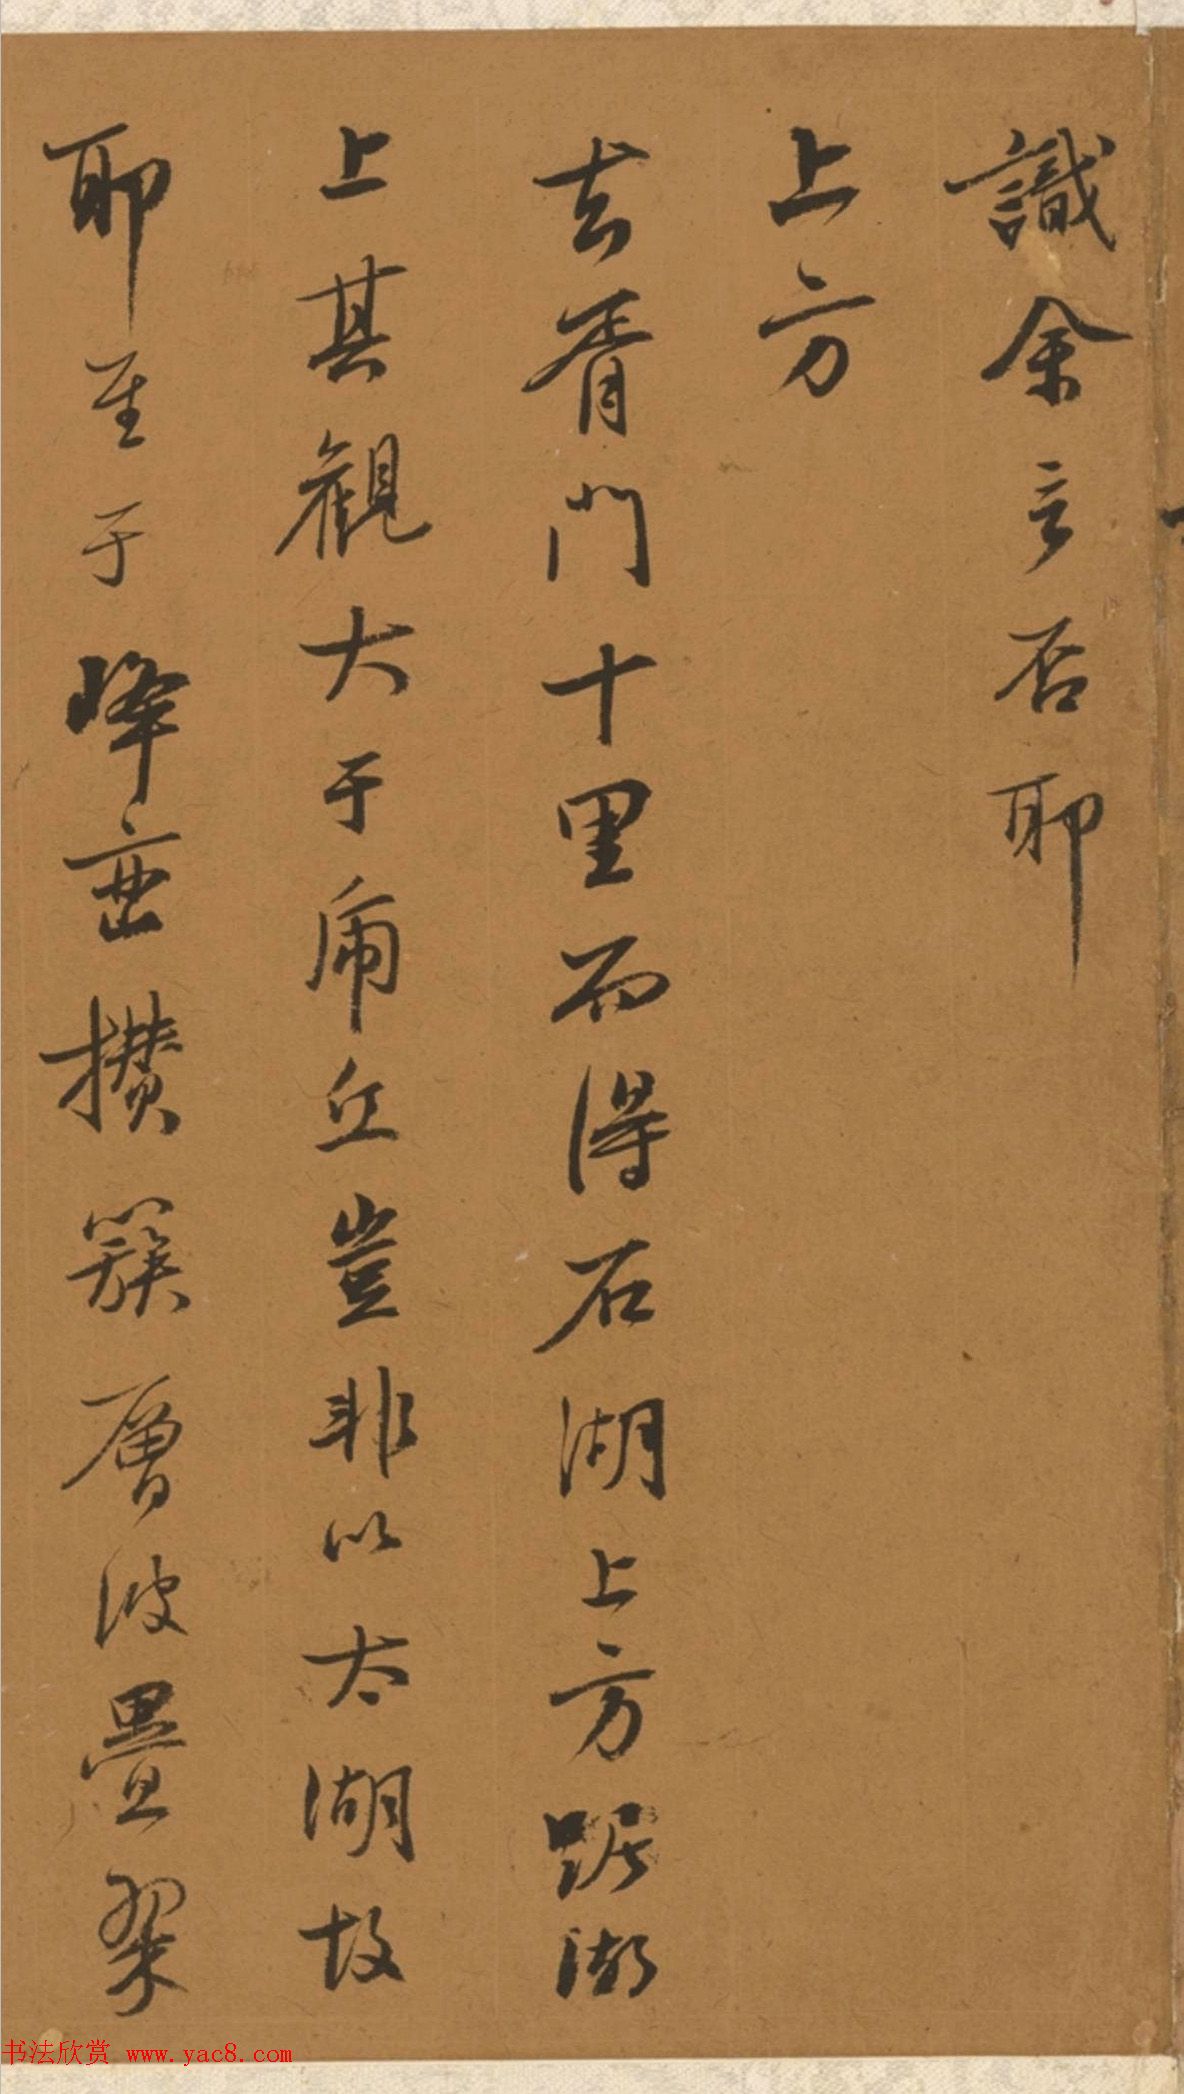 識余言否耶
上方
去胥門十里而得石湖上方踞湖
上其觀大于虎丘豈非以太湖故
耶至于峰巒攢簇層波疊翠
书法欣赏 www.yac8.com